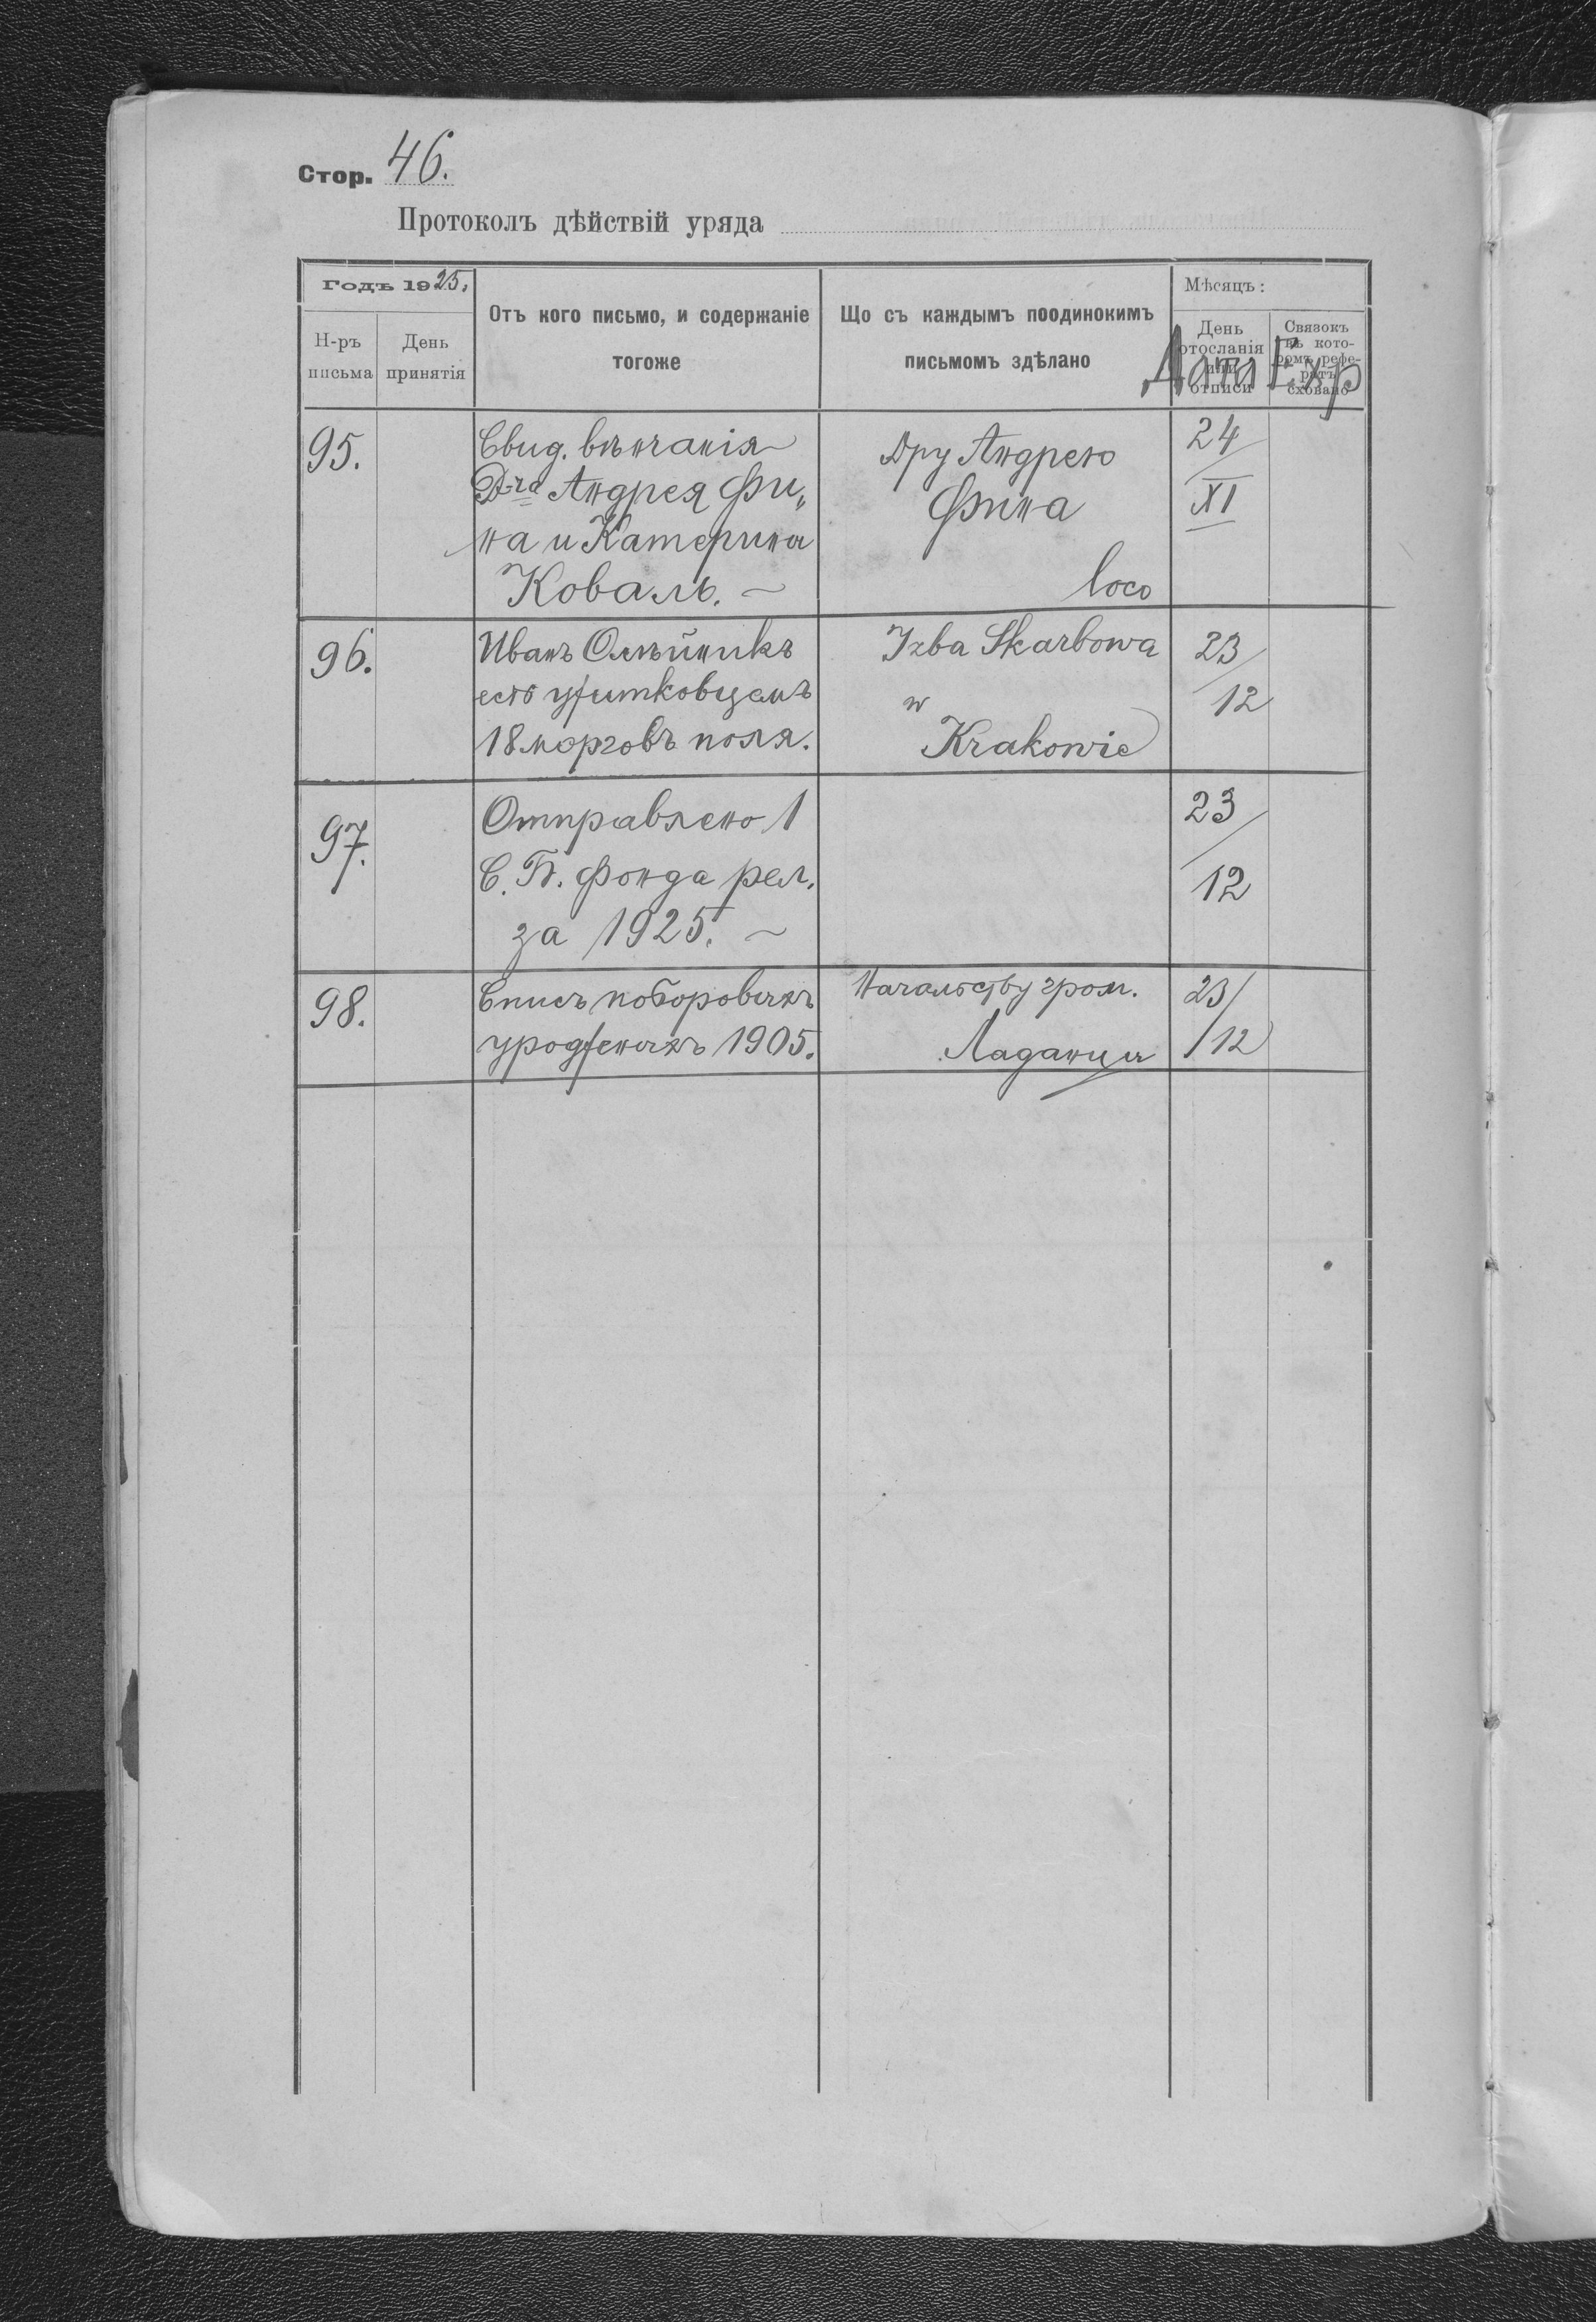 Стор. 46.
Протоколъ дѣйствій уряда
Годъ 1925.
Н-ръ письма
День принятія
Отъ кого письмо, и содержаніе
тогоже
Що съ каждымъ поодинокимъ
письмомъ здѣлано
Мѣсяцъ:
День
отосланія
или
отписи
Связокъ
въ кото-
ромъ рефе-
ратъ
сховано
Дата Exp
95.
Свид. вѣнчанія
Д-ра Андрея Фи„
на и Катерина
Коваль. ~
Дру Андрею
Фина
loco
24/XI
96.
Иванъ Олѣйникъ
есть ужитковцемъ
18 морговъ поля.
Izba Skarbowa
w
Krakowie
23/12
97.
Отправлено 1
С. Б. фонда рел.
за 1925. ~
23/12
98.
Списъ поборовыхъ
урожденыхъ 1905.
Начальству гром.
Ладанцы
23/12